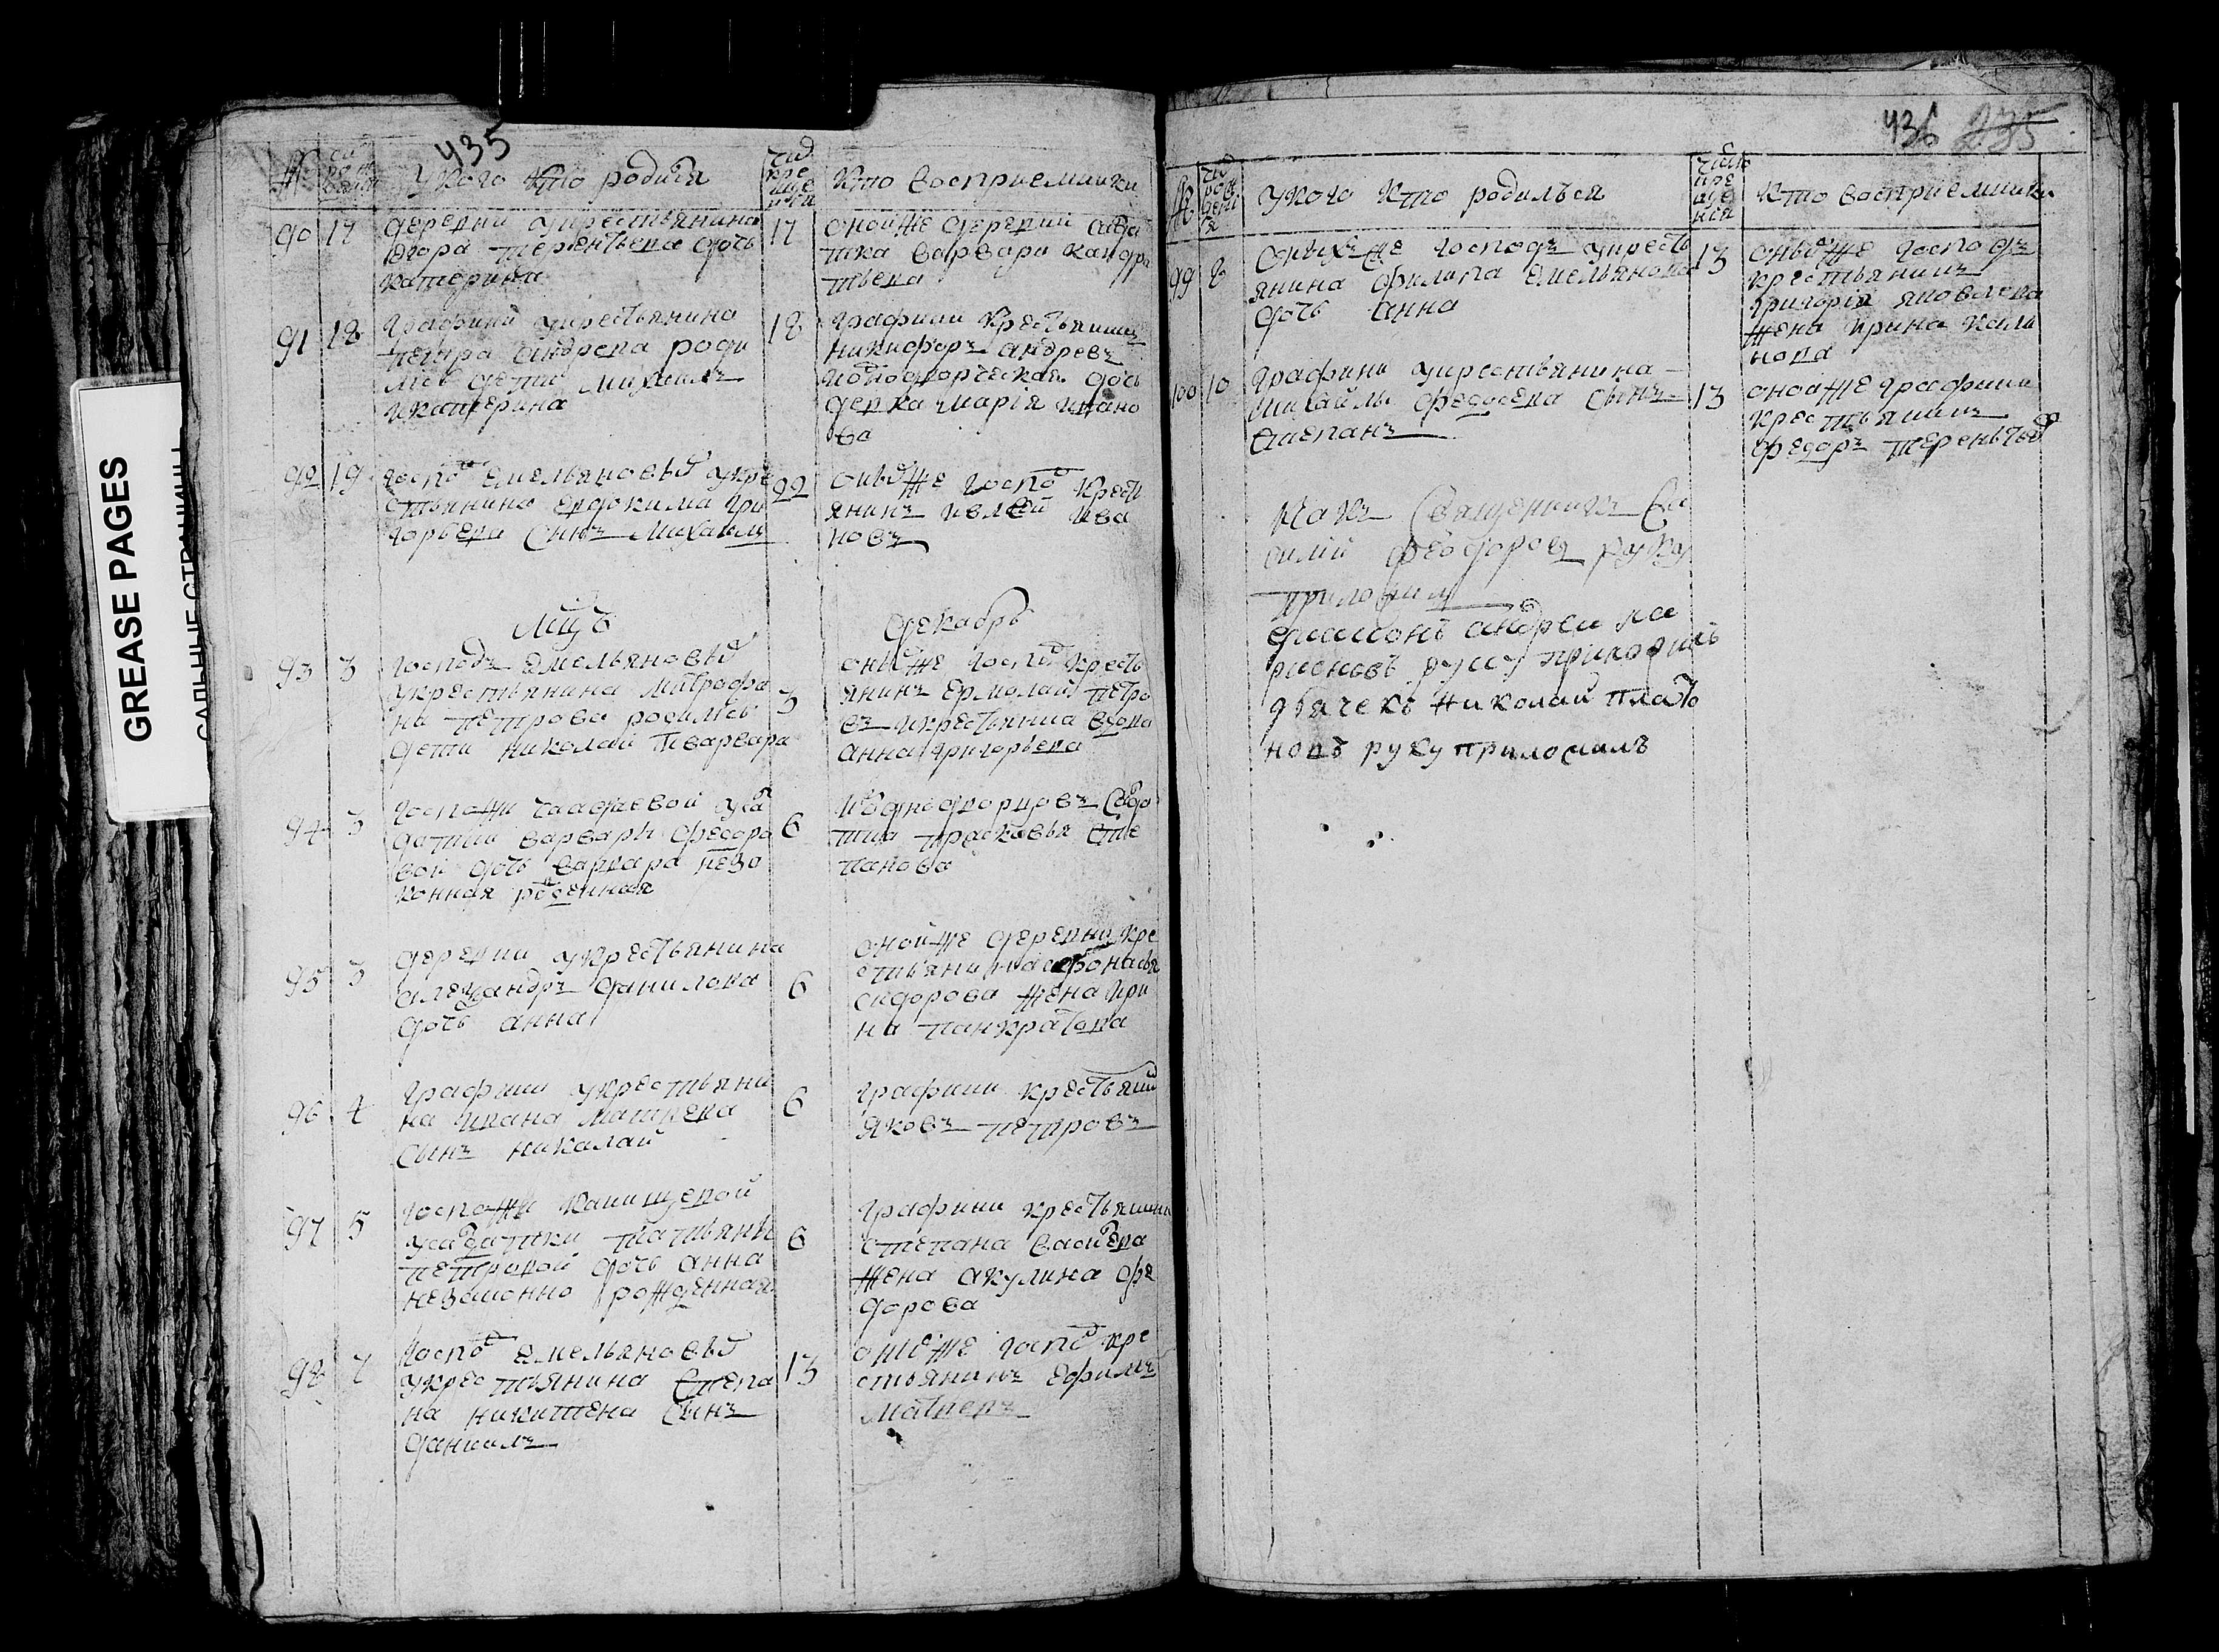 GREASE PAGES
САЛЬНЫЕ СТРАНИЦЫ
435
№
У кого кто родился
Кто восприемники
90 17
деревни у крестьянина
Егора Терентьева дочь
Катерина
17
оной же деревни
Варвара Кандра
тьева
91 18
графини у крестьянина
Петра Андреева роди
лись дети Михаилъ
и Катерина
18
графини крестьянинъ
Никифоръ Андревъ
дочь
девка Марія Ивано
ва
92 19
госпо Емельяновы у кре
стьянина Евдокима Гри
горьева сынъ Михаилъ
22
оны же госпо крестъ
янинъ Ива
новъ
Мцъ Декабрь
93 3
господъ Емельяновы
у крестьянина Митрофа
на Петрова родились
дети Николай и Варвара
3
оны же госпо кресть
янинъ Ермолай Петро
въ и крестьянина вдова
Анна Григорьева
94 3
госпожи
Варвары Федоро
вой дочь Варвара неза
конная роденная
6
Прасковья Сте
панова
95 3
деревни у крестьянина
Александръ Данилова
дочь Анна
6
оной же деревни кре
стьянина Афонасья
Сидорова жена Ири
на Панкратова
96 4
графини у крестьяни
на Ивана Матвева
сынъ Николай
6
графини крестьяни
Яковъ Петровъ
97 5
госпожи Канищевой
Татьяны
Петровой дочь Анна
незаконно рожденная
6
графини крестьянина
Степана Васильева
жена Акулина Фе
дорова
98 7
госпо Емельяновы
у крестьянина Степа
на Никитена сынъ
Даниилъ
13
оны же госпо кре
стьянинъ Ефимъ
Матвевъ
436 235
№
У кого кто родилься
Кто восприемники
99 8
оныхъ же господъ у кресть
янина Филипа Емельянова
дочь Анна
13
оны же господъ
крестьянинъ
Григорія Яковлева
жена Ирина
100 10
графини у крестьянина
Михайлы Федосева сынъ
Степанъ
13
оной же графини
крестьянинъ
Федоръ Терентьевъ
Священникъ Ва
силій Феодоровъ руку
приложилъ
Андреи Ла
рионовъ руку приложилъ
дьячекъ Николаи Плато
новъ руку приложилъ